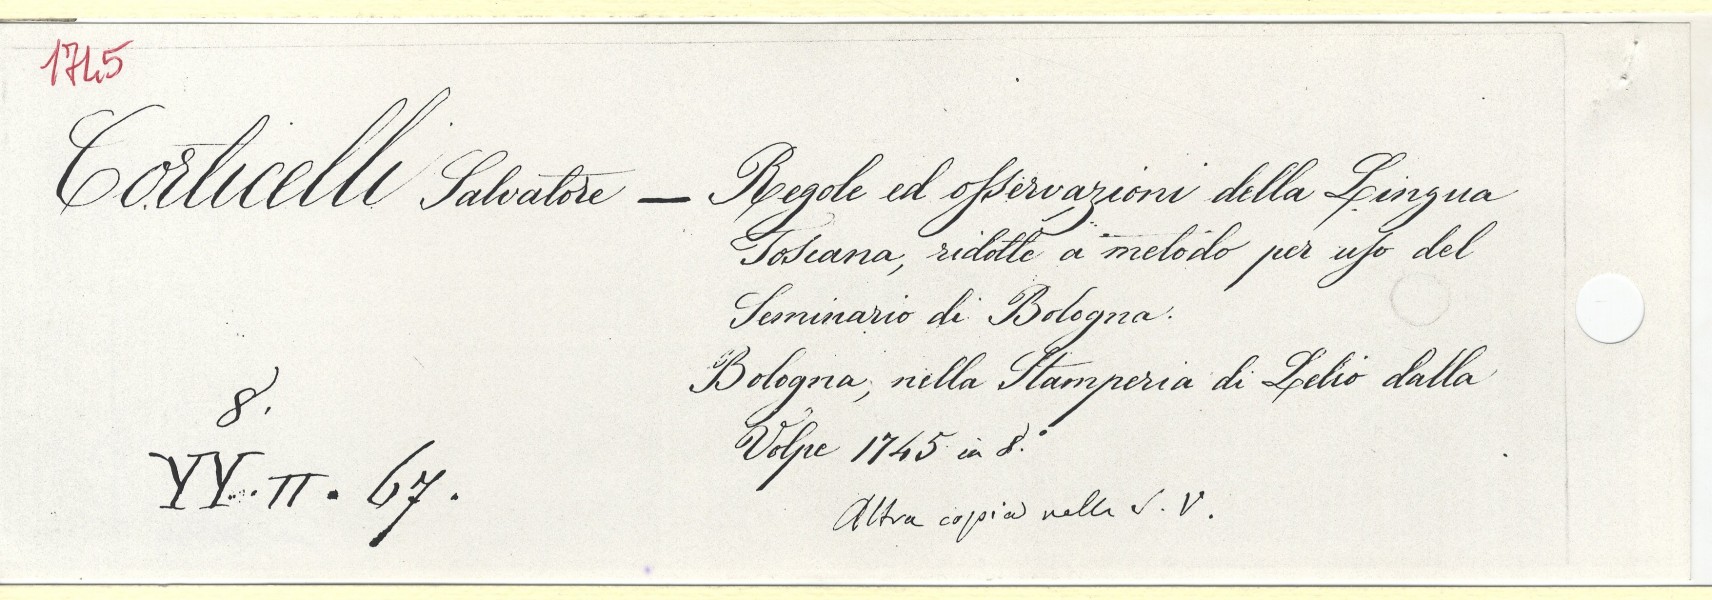 1745
Corticelli Salvatore — Regole ed osservazioni della Lingua
Toscana, ridotte a metodo per uso del
Seminario di Bologna.
Bologna, nella Stamperia di Lelio dalla
Volpe 1745 in 8.°
Altra copia nella S. V.
8.
YY. II. 67.